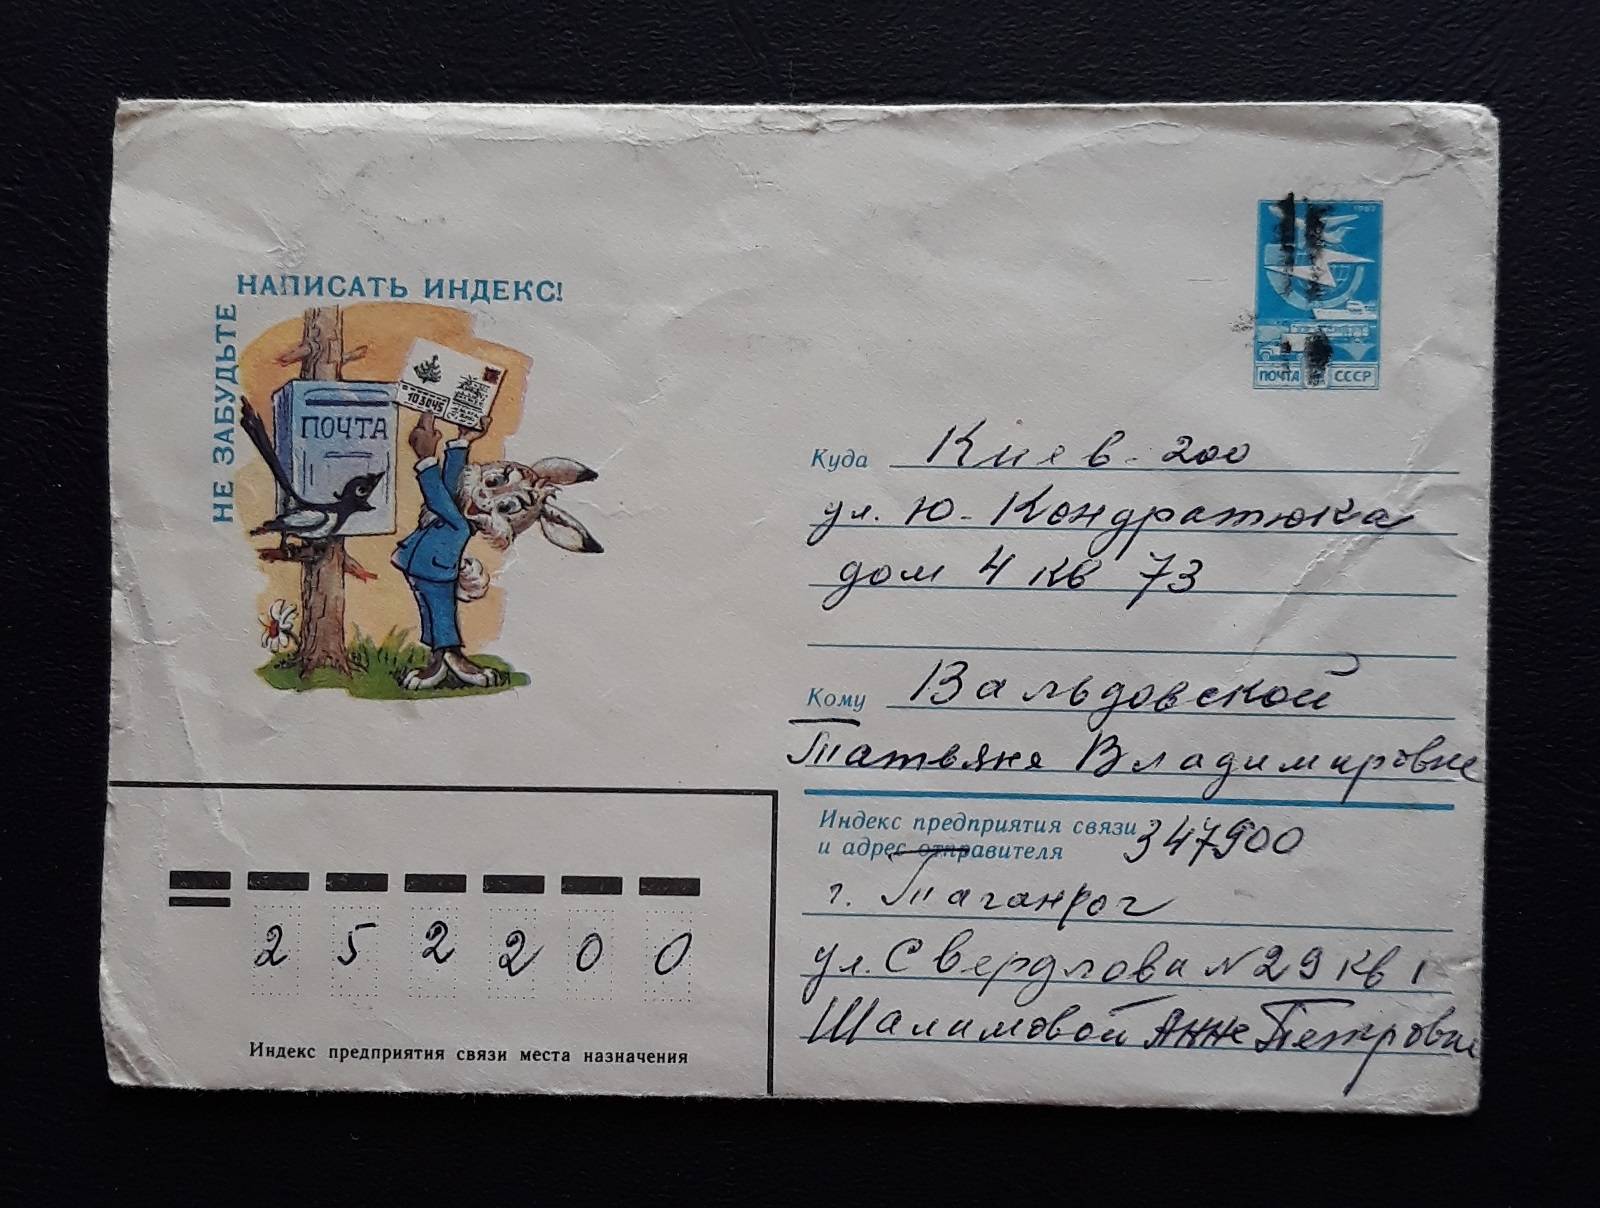 НЕ ЗАБУДЬТЕ
НАПИСАТЬ ИНДЕКС!
103045
ПОЧТА
ПОЧТА СССР
Куда Киев - 200
ул. Ю - Кондратюка
дом 4 кв 73
Кому Вальдовской
Татьяне Владимировне
Индекс предприятия связи
и адрес отправителя 347900
г. Таганрог
ул. Свердлова N 29 кв 1
Шалимовой Анне Петровне
2 5 2 2 0 0
Индекс предприятия связи места назначения